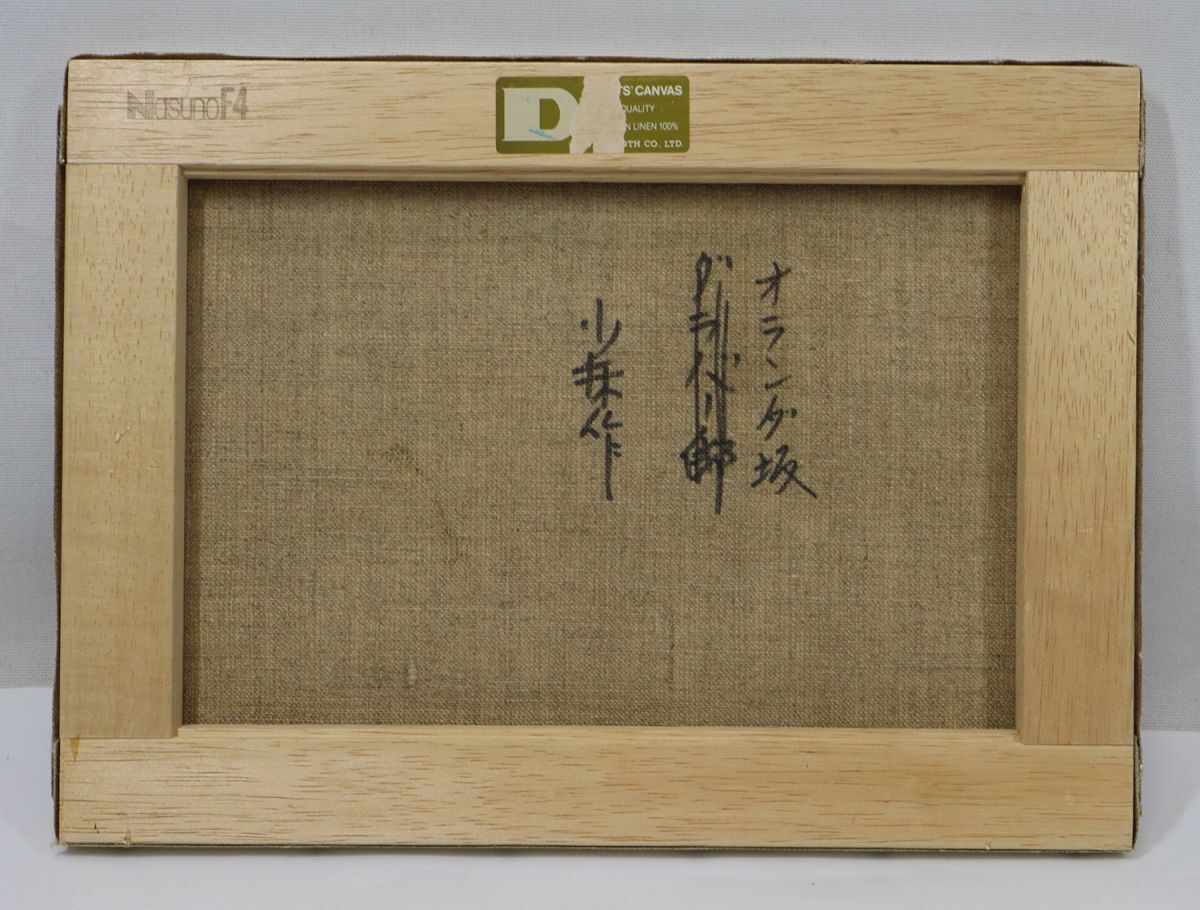 NasunoF4
TS' CANVAS
QUALITY
N LINEN 100%
OTH CO. LTD.
オランダ坂
グラバー邸
作